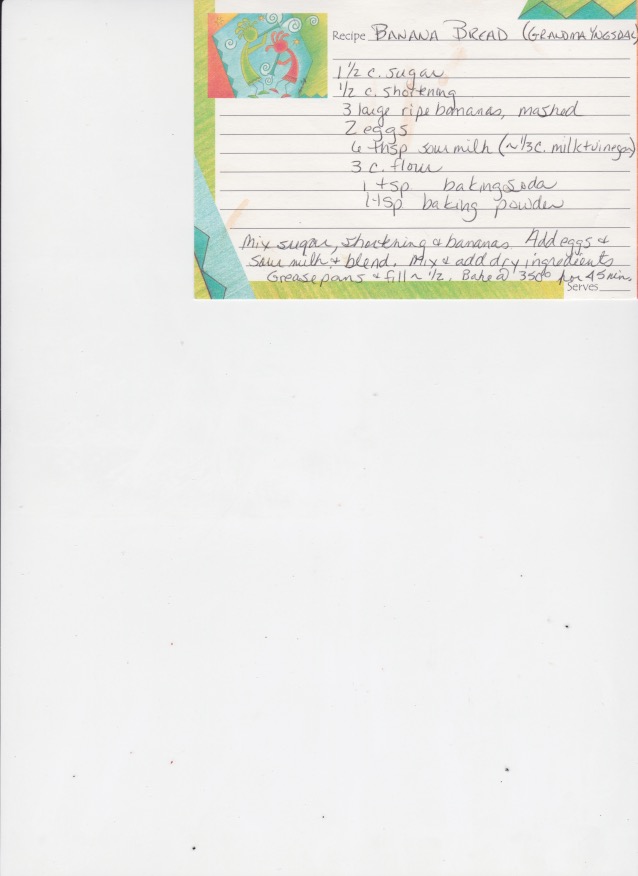 Recipe BANANA BREAD (GRANDMA YNGSDAL
1 1/2 c. sugar
1/2 c. shortening
3 large ripe bananas, mashed
2 eggs
6 tbsp sour milk (~ 1/3 c. milk + vinegar)
3 c. flour
1 tsp baking soda
1 tsp baking powder
Mix sugar, shortening & bananas. Add eggs &
sour milk & blend. Mix & add dry ingredients
Grease pans & fill ~ 1/2. Bake @ 350° for 45 mins.
Serves